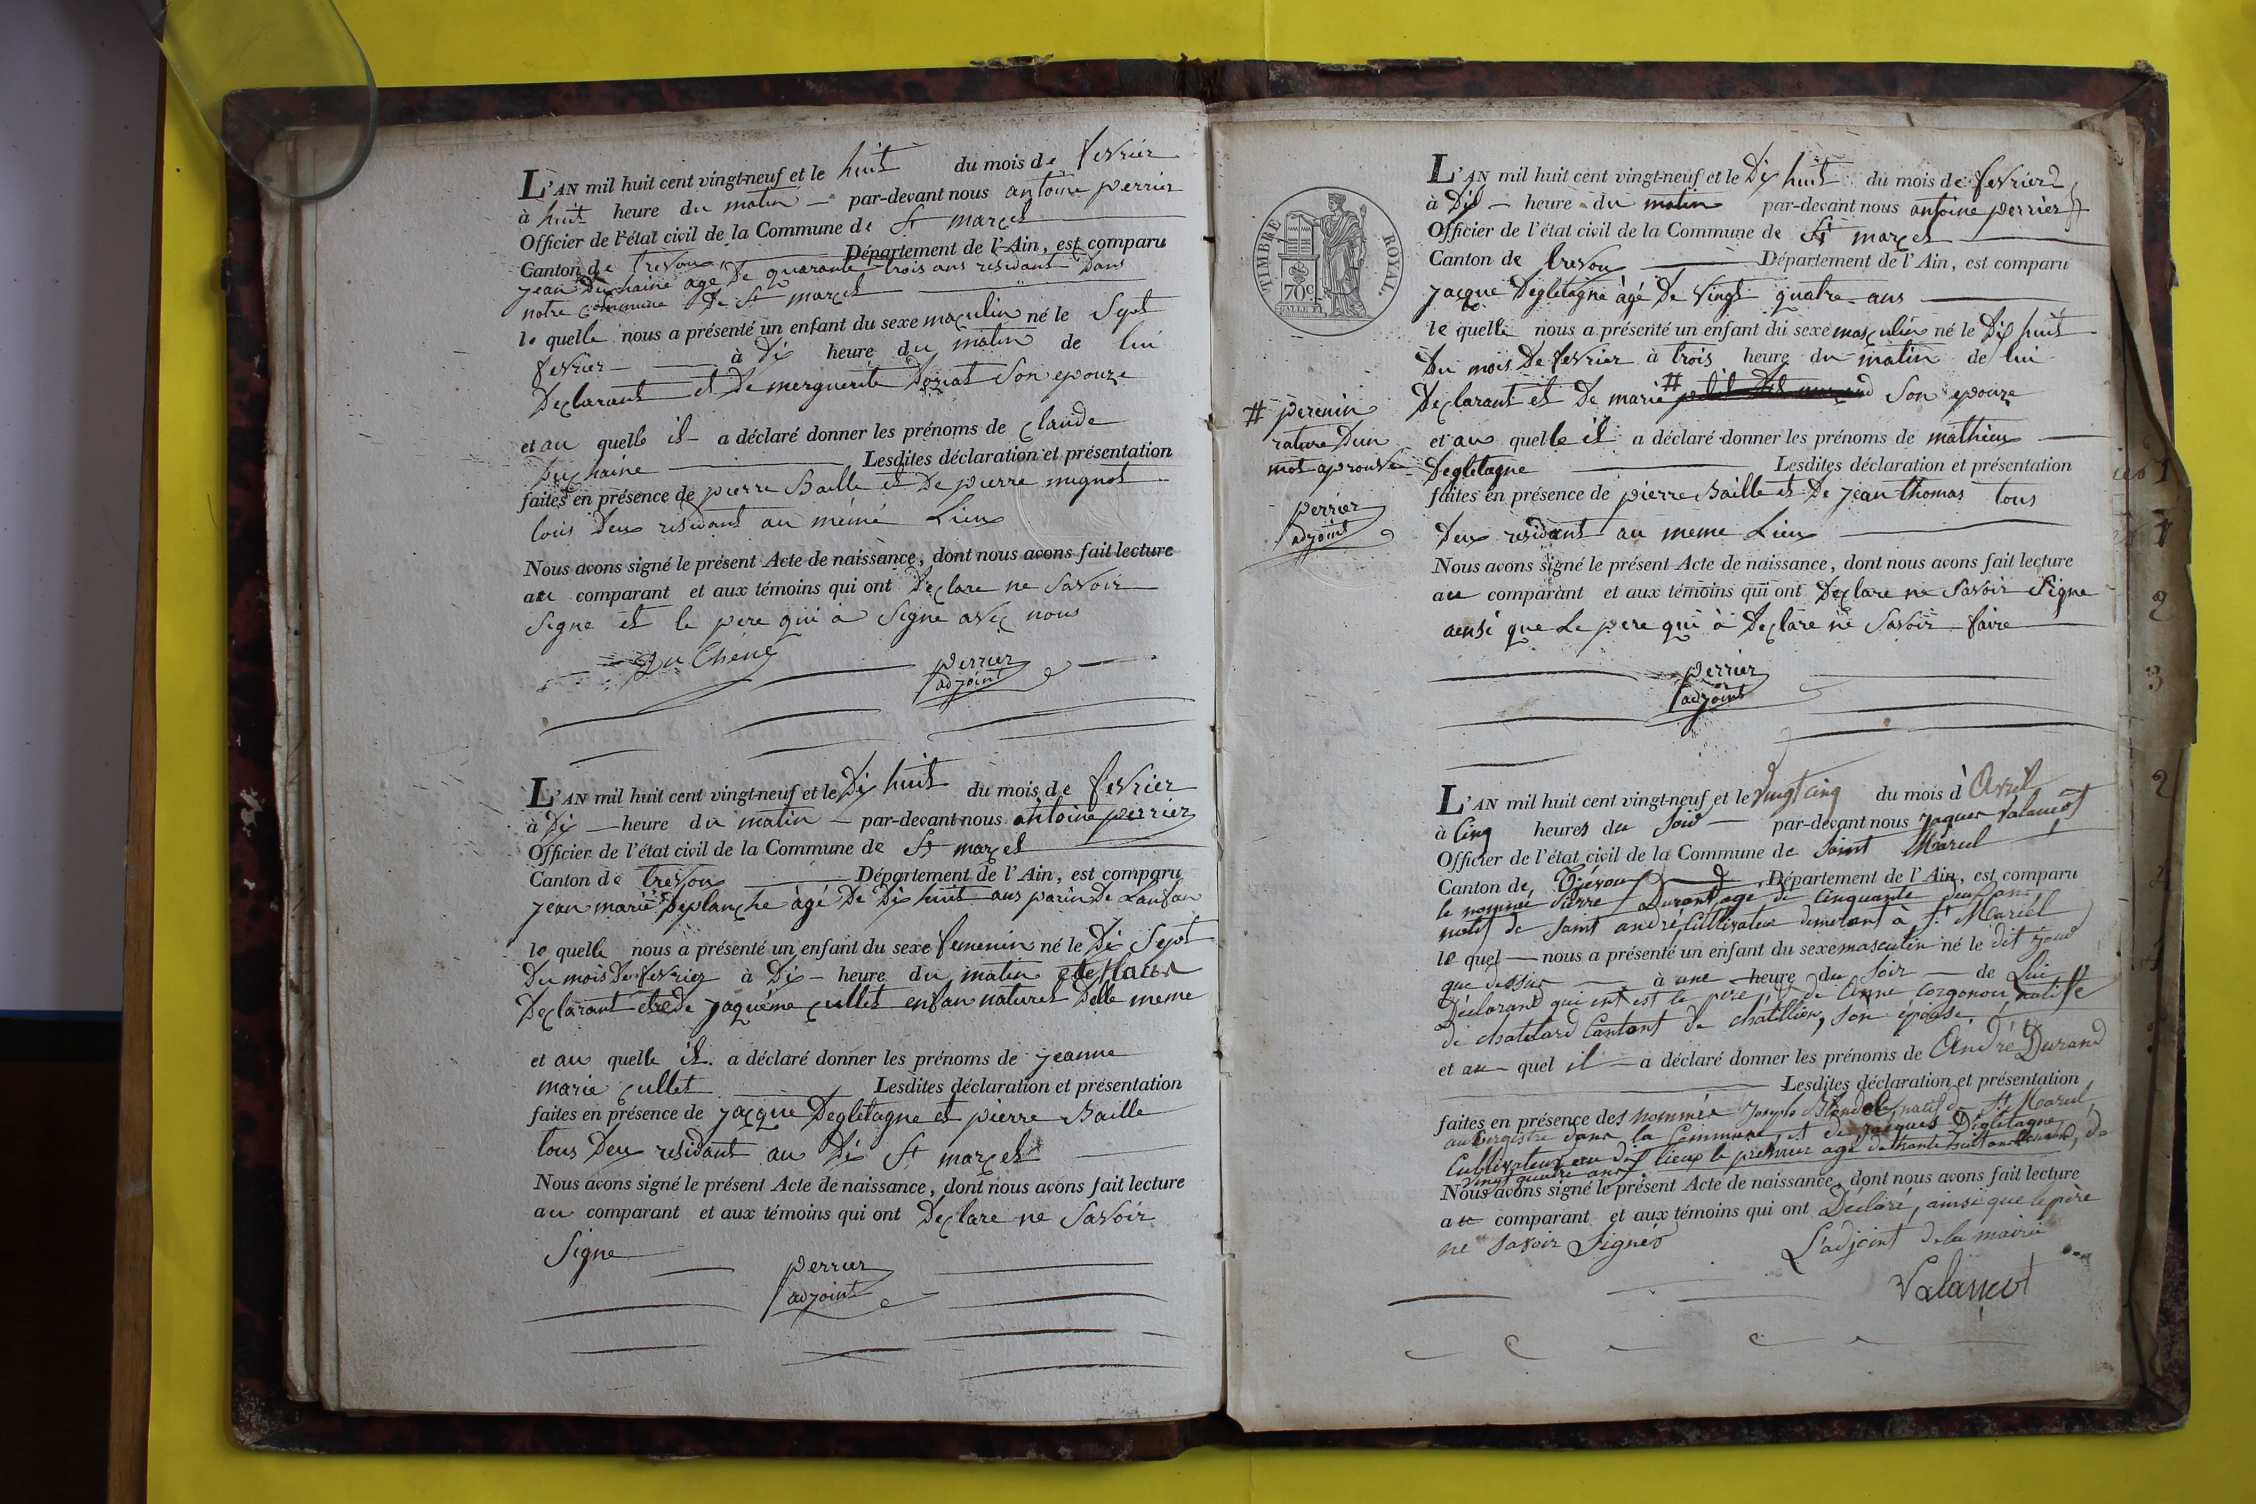 L'AN mil huit cent vingt-neuf et le huit du mois de fevrier
à huit heure du matin par-devant nous antoine perrier
Officier de l'état civil de la Commune de St marcel
Canton de trevou Département de l'Ain, est comparu
jean Duchaine age De quarante trois ans residant dans
notre commune De St marcel
le quelle nous a présenté un enfant du sexe masculin né le Sept
fevrier à Dix heure du matin de lui
Declarant et De merguerite Doriat Son epouze
et au quelle il a déclaré donner les prénoms de claude
Duchaine Lesdites déclaration et présentation
faites en présence de pierre Baille et De pierre mignot
tous Deux residant au même Lieu
Nous avons signé le présent Acte de naissance, dont nous avons fait lecture
au comparant et aux témoins qui ont Declare ne Savoir
Signe et le pere qui à Signe avec nous
Du Chêne
perrier
adjoint
L'AN mil huit cent vingt-neuf et le Dix huit du mois de fevrier
à Dix heure du matin par-devant nous antoine perrier
Officier de l'état civil de la Commune de St marcel
Canton de trevou Département de l'Ain, est comparu
jean marie Deplanche àgé De Dix huit ans parin De Lanfan
le quelle nous a présenté un enfant du sexe femenin né le Dix Sept
Du mois De fevrier à Dix heure du matin
Declarant de jaqueme cullet enfan naturel Delle meme
et au quelle il a déclaré donner les prénoms de jeanne
marie cullet Lesdites déclaration et présentation
faites en présence de jacque Degletagne et pierre Baille
tous Deux residant au Dit St marcel
Nous avons signé le présent Acte de naissance, dont nous avons fait lecture
au comparant et aux témoins qui ont Declare ne Savoir
Signe
perrier
adjoint
TIMBRE ROYAL.
70c
# perenin
rature Dun
mot aprouve
perrier
adjoint
L'AN mil huit cent vingt-neuf et le Dix huit du mois de fevrier
à Dix heure du matin par-devant nous antoine perrier
Officier de l'état civil de la Commune de St marcel
Canton de trevou Département de l'Ain, est comparu
jacque Degletagne àgé De Vingt quatre ans
le quelle nous a présenté un enfant du sexe masculin né le Dix huit
Du mois De fevrier à trois heure du matin de lui
Declarant et De marie # Son epouze
et au quelle il a déclaré donner les prénoms de mathieu
Degletagne Lesdites déclaration et présentation
faites en présence de pierre Baille et De jean thomas tous
Deux residant au meme Lieu
Nous avons signé le présent Acte de naissance, dont nous avons fait lecture
au comparant et aux témoins qui ont Declare ne Savoir Signe
aensi que Le pere qui à Declare ne Savoir faire
perrier
adjoint
L'AN mil huit cent vingt-neuf et le vingt cinq du mois d'Avril
à Cinq heures du Soir par-devant nous Jaques Valancot
Officier de l'état civil de la Commune de Saint Marcel
Canton de Trévoux Département de l'Ain, est comparu
le nommé Pierre Durand agé de Cinquante deux ans
natif de Saint andré, Cultivateur demeurant à St Marcel
le quel nous a présenté un enfant du sexe masculin né le dit jour
que dessus à une heure du Soir de Lui
Déclarant qui en est le pere, et de Anne corgonou native
de chatelard Canton de chatillon, Son épouse
et au quel il a déclaré donner les prénoms de André Durand
Lesdites déclaration et présentation
faites en présence des nommés Joseph Blondel natif de St Marcel,
aubergiste dans la Commune, et de Jacques Degletagne
Cultivateur au dit lieux le premier agé de trente huit ans
vingt quatre ans
Nous avons signé le présent Acte de naissance, dont nous avons fait lecture
au comparant et aux témoins qui ont Déclaré, ainsi que le père
ne savoir Signer L'adjoint de la mairie
Valancot
1
1
2
3
2